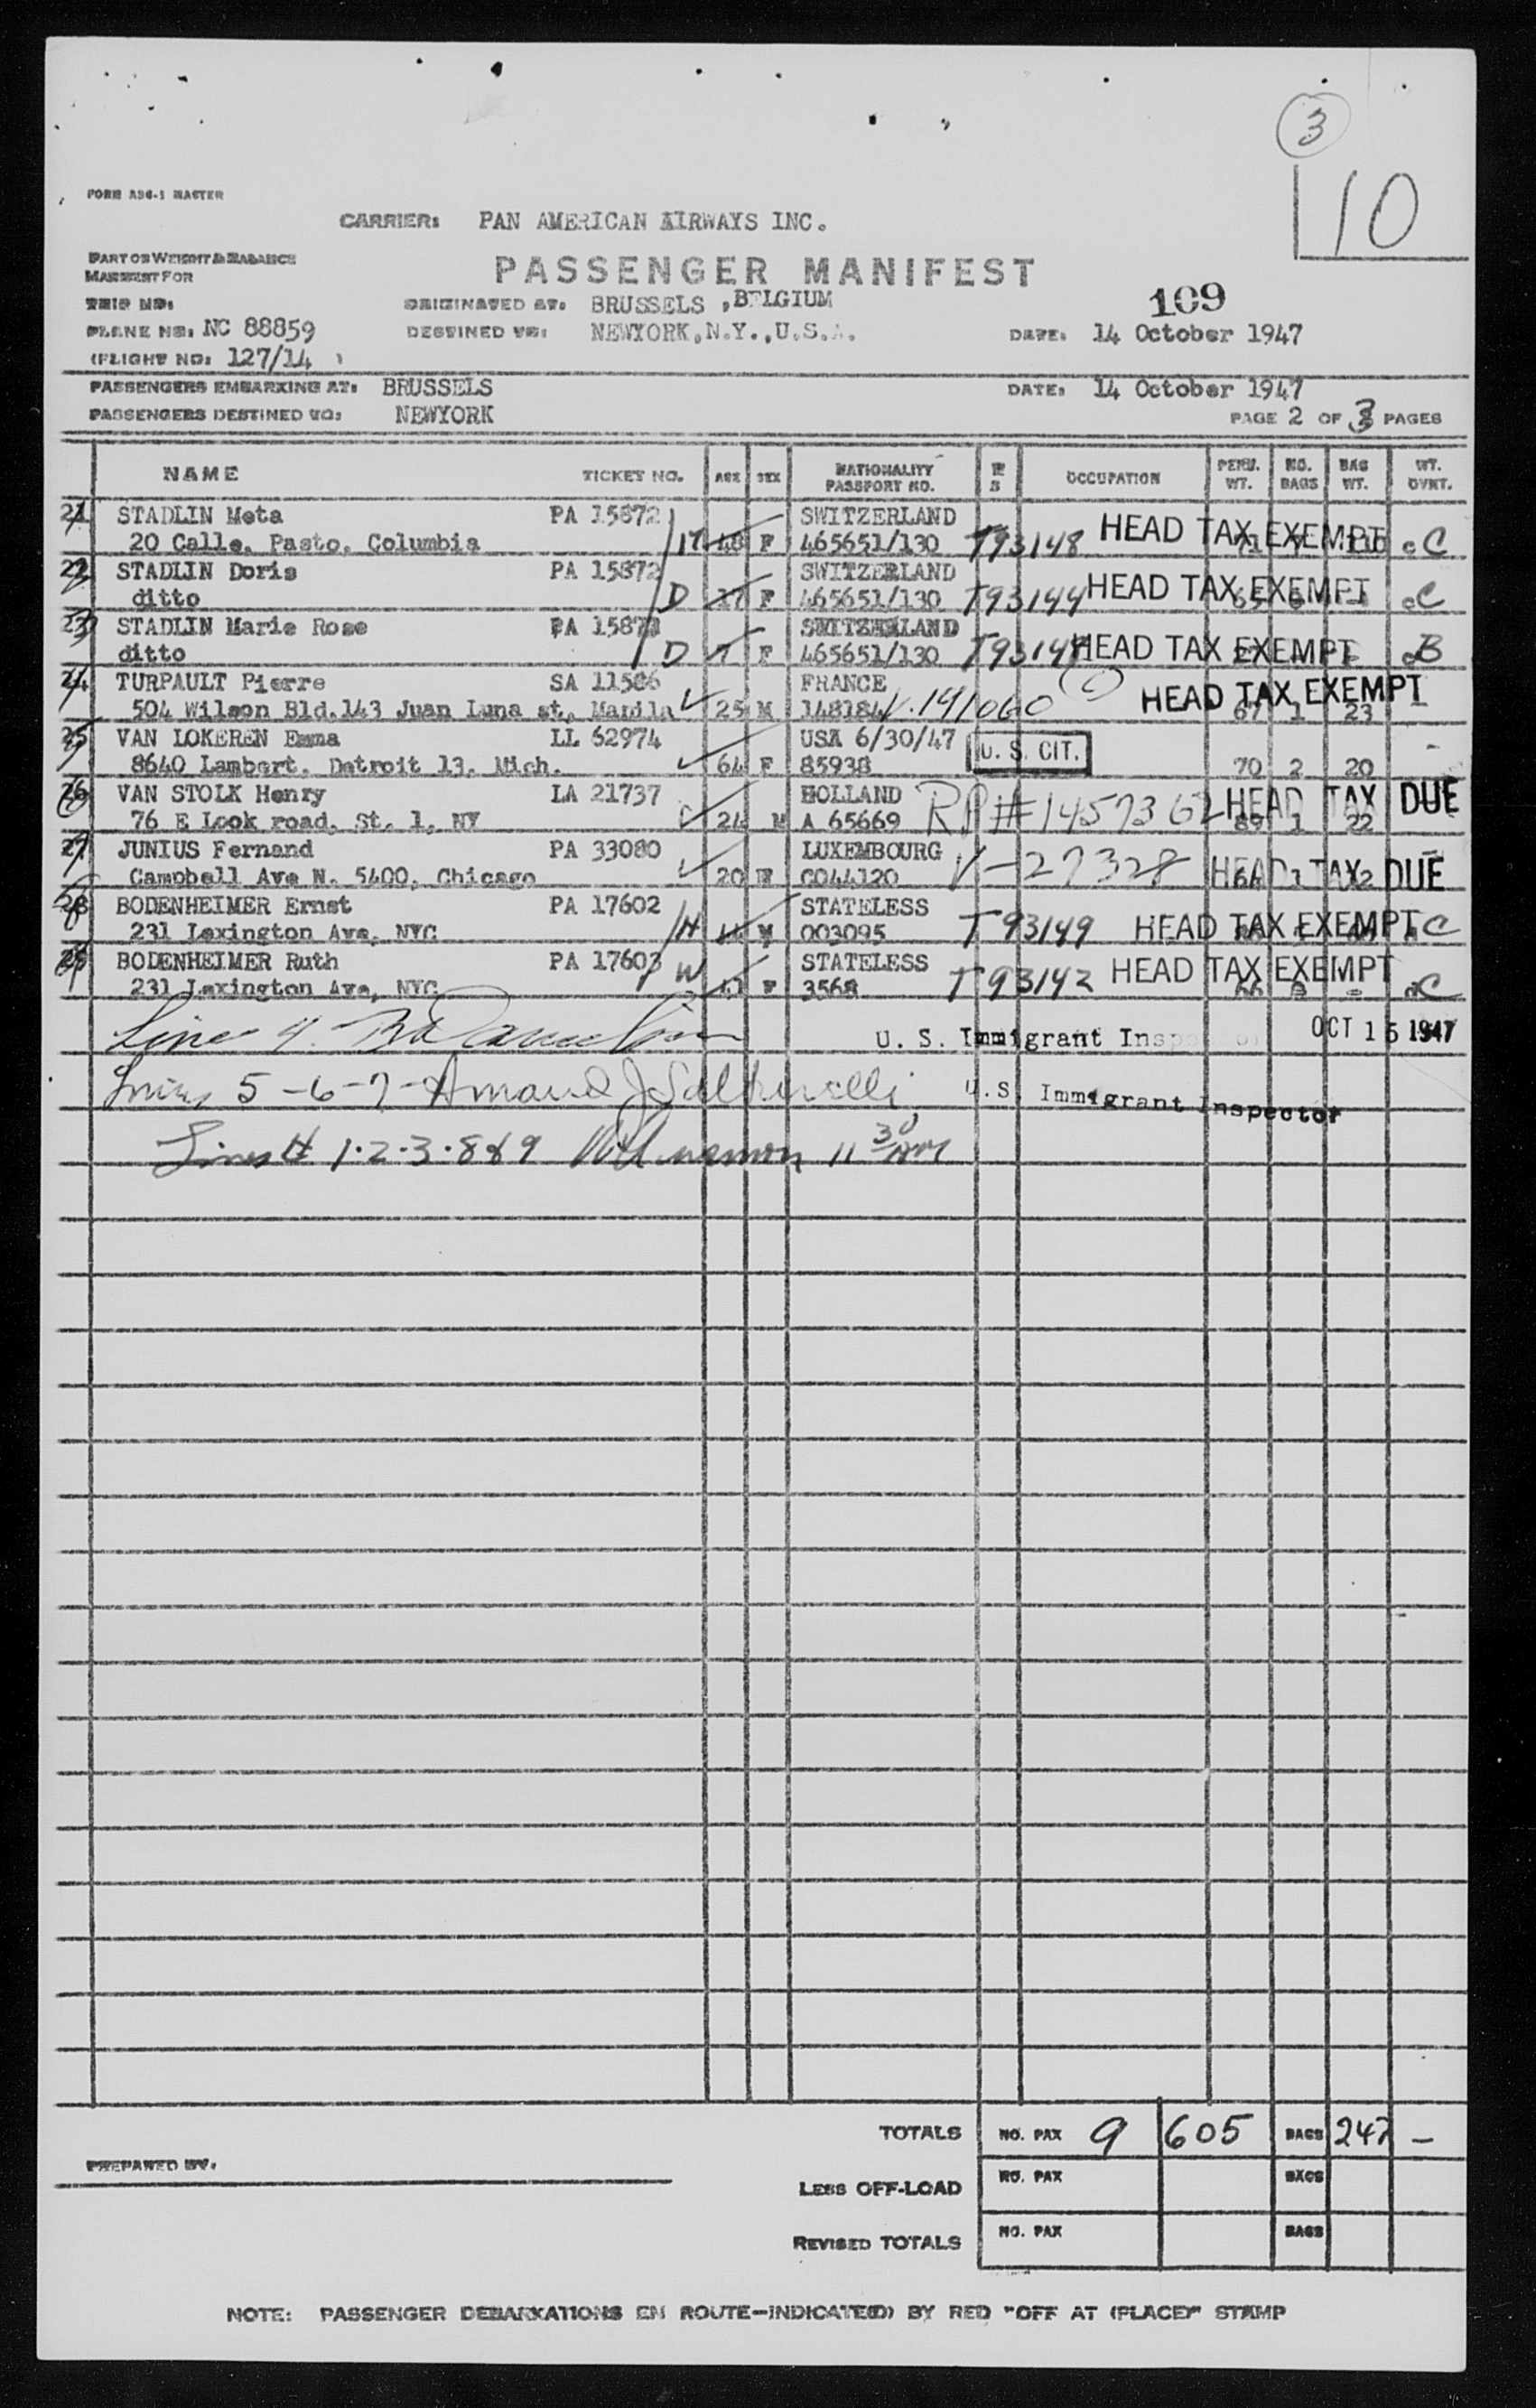 3
10
FORM A36-1 MASTER
CARRIER: PAN AMERICAN AIRWAYS INC.
PART OF WEIGHT & BALANCE
MANIFEST FOR
PASSENGER MANIFEST
109
TRIP NO: ORIGINATED AT: BRUSSELS ,BELGIUM
PLANE NO: NC 88859 DESTINED TO: NEWYORK,N.Y.,U.S.A. DATE: 14 October 1947
(FLIGHT NO: 127/14 )
PASSENGERS EMBARKING AT: BRUSSELS DATE: 14 October 1947
PASSENGERS DESTINED TO: NEWYORK PAGE 2 OF 3 PAGES
NAME TICKET NO. AGE SEX NATIONALITY PASSPORT NO. OCCUPATION PERS. WT. NO. BAGS BAG WT. WT. OVRT.
21 STADLIN Meta PA 15872 SWITZERLAND
20 Calle, Pasto, Columbia 48 F 465651/130 T93148 HEAD TAX EXEMPT C
22 STADLIN Doris PA 15872 SWITZERLAND
ditto D 17 F 465651/130 T93144 HEAD TAX EXEMPT C
23 STADLIN Marie Rose PA 15873 SWITZERLAND
ditto D 7 F 465651/130 HEAD TAX EXEMPT B
24 TURPAULT Pierre SA 11586 FRANCE
504 Wilson Bld.143 Juan Luna st, Manila 25 M 148184 V.141060 HEAD TAX EXEMPT 67 1 23
25 VAN LOKEREN Emma LL 62974 USA 6/30/47 U. S. CIT.
8640 Lambert, Detroit 13, Mich. 64 F 85938 70 2 20
26 VAN STOLK Henry LA 21737 HOLLAND
76 E Look road, St. 1, NY 24 M A 65669 RP# 1457362 HEAD TAX DUE 89 1 22
27 JUNIUS Fernand PA 33080 LUXEMBOURG
Campbell Ave N. 5400, Chicago 20 M C044120 V-27328 HEAD TAX DUE
28 BODENHEIMER Ernst PA 17602 STATELESS
231 Lexington Ave, NYC H M 003095 T 93149 HEAD TAX EXEMPT C
29 BODENHEIMER Ruth PA 17603 STATELESS
231 Lexington Ave, NYC W 41 F 3568 T 93142 HEAD TAX EXEMPT C
Line 4. U. S. Immigrant Inspector OCT 15 1947
Lines 5-6-7- Armand J U.S. Immigrant Inspector
Lines # 1·2·3·8&9 11 30 AM
TOTALS NO. PAX 9 605 BAGS 247 –
PREPARED BY:
LESS OFF-LOAD NO. PAX BAGS
REVISED TOTALS NO. PAX BAGS
NOTE: PASSENGER DEBARKATIONS EN ROUTE-INDICATE(D) BY RED "OFF AT (PLACE)" STAMP